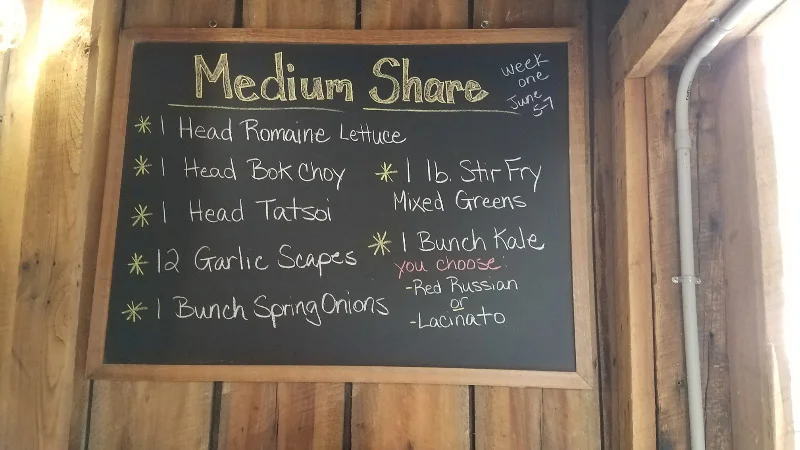 Medium Share
week
one
June
5-7
* 1 Head Romaine Lettuce
* 1 Head Bok Choy
* 1 Head Tatsoi
* 12 Garlic Scapes
* 1 Bunch Spring Onions
* 1 lb. Stir Fry
Mixed Greens
* 1 Bunch Kale
you choose:
-Red Russian
or
-Lacinato